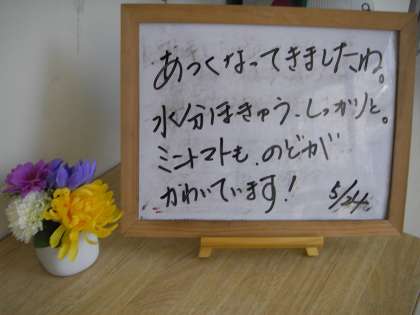 あつくなってきましたね。
水分ほきゅう、しっかりと。
ミニトマトも、のどが
かわいています！
5/24